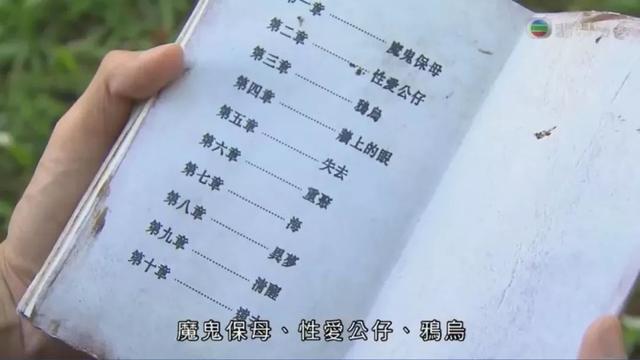 第一章 ............ 魔鬼保母
第二章 ............ 性愛公仔
第三章 ............ 鴉烏
第四章 ............ 牆上的眼
第五章 ............ 失去
第六章 ............ 重聚
第七章 ............ 海
第八章 ............ 異夢
第九章 ............ 清醒
第十章 ............
魔鬼保母、性愛公仔、鴉烏